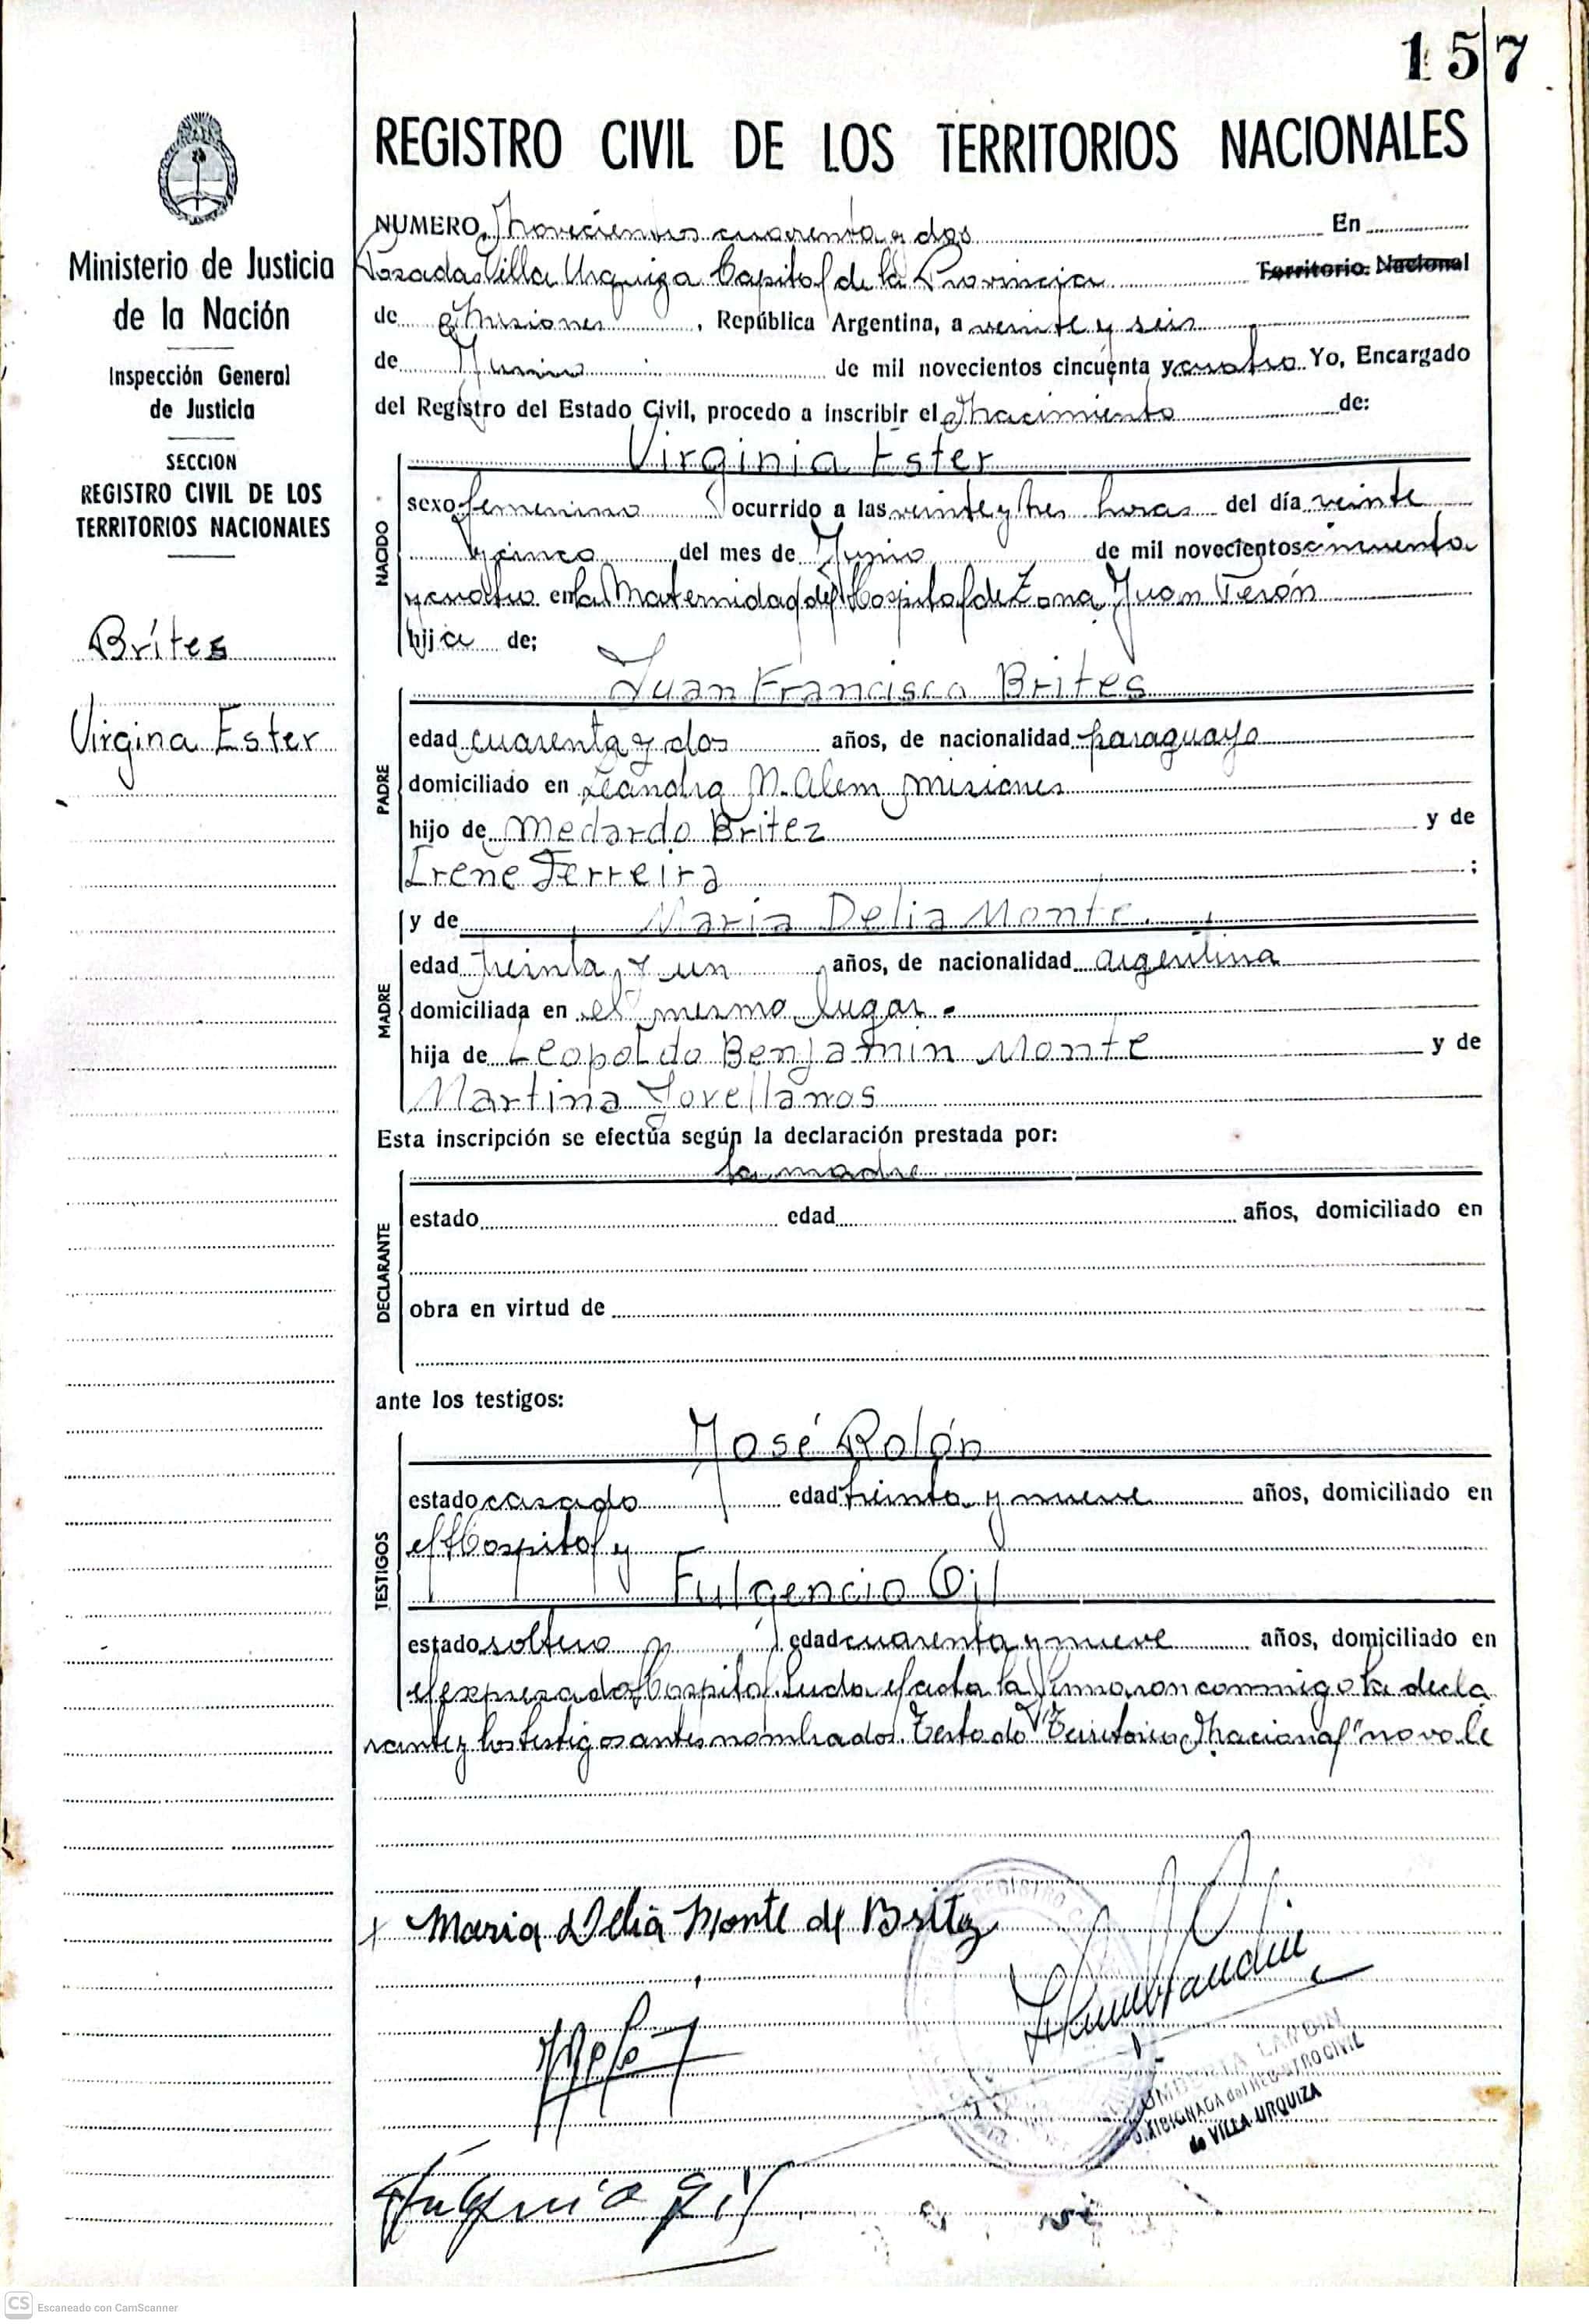 157
REGISTRO CIVIL DE LOS TERRITORIOS NACIONALES
Ministerio de Justicia
de la Nación
Inspección General
de Justicia
SECCION
REGISTRO CIVIL DE LOS
TERRITORIOS NACIONALES
Brítes
Virgina Ester
NUMERO Novecientos cuarenta y dos En
Posadas Villa Urquiza Capital de la Provincia Territorio Nacional
de Misiones, República Argentina, a veinte y seis
de Junio de mil novecientos cincuenta y cuatro Yo, Encargado
del Registro del Estado Civil, procedo a inscribir el Nacimiento de:
Virginia Ester
NACIDO
sexo femenino ocurrido a las veinte y tres horas del día veinte
y cinco del mes de Junio de mil novecientos cincuenta
y cuatro en la Maternidad del Hospital de Zona Juan Perón
hija de;
Juan Francisco Brites
PADRE
edad cuarenta y dos años, de nacionalidad paraguayo
domiciliado en Leandro N. Alem Misiones
hijo de Medardo Britez y de
Irene Ferreira ;
y de Maria Delia Monte
MADRE
edad treinta y un años, de nacionalidad argentina
domiciliada en el mismo lugar.-
hija de Leopoldo Benjamin Monte y de
Martina Jovellanos
Esta inscripción se efectúa según la declaración prestada por:
la madre
DECLARANTE
estado edad años, domiciliado en
obra en virtud de
ante los testigos:
José Rolón
TESTIGOS
estado casado edad treinta y nueve años, domiciliado en
el Hospital y
Fulgencio Gil
estado soltero y edad cuarenta y nueve años, domiciliado en
el expresado Hospital. Leida el acta la firmaron conmigo la decla
rante y los testigos antes nombrados. Testado "Territorio Nacional" no vale
Maria Delia Monte de Britez
REGISTRO CIVIL
de VILLA URQUIZA
Fulgencio Gil
CS Escaneado con CamScanner